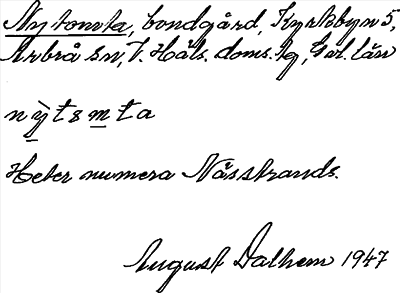 Nytomta, bondgård, Kyrkbyn 5,
Arbrå sn, V. Häls. doms. tg, Gvl. län
nỳtsmta
Heter numera Nässtrands.
August Dalhem 1947